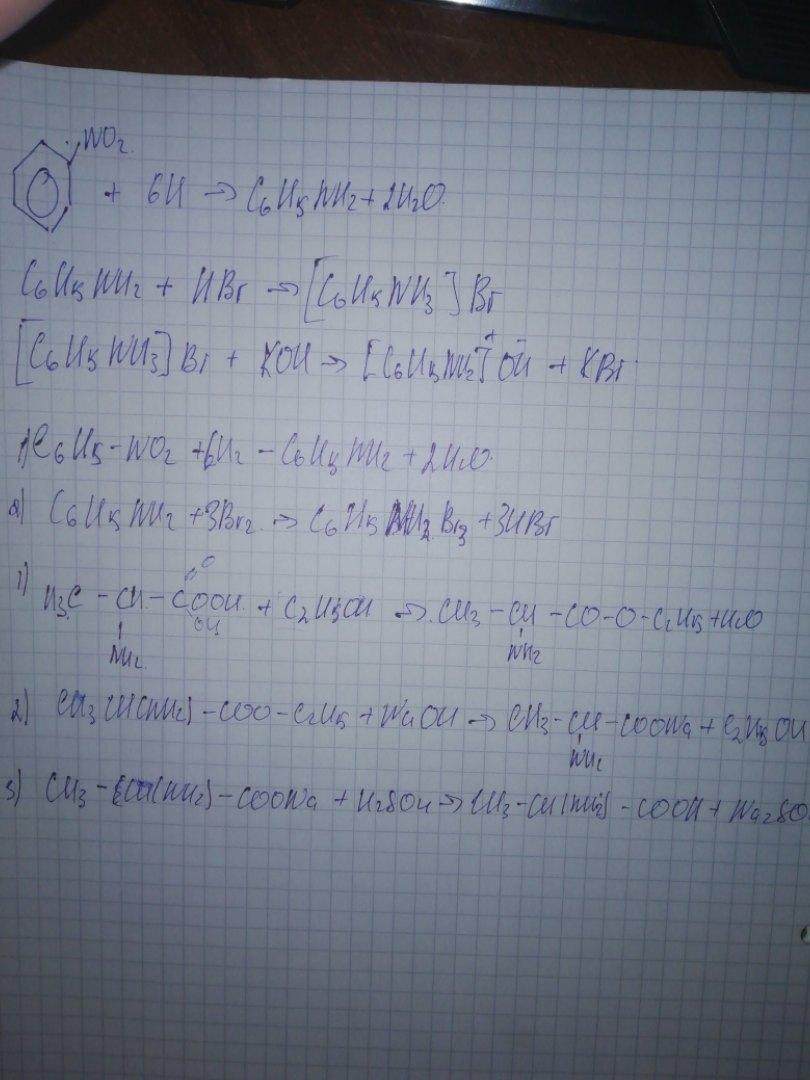 NO2
+ 6H → C6H5NH2 + 2H2O
C6H5NH2 + HBr → [C6H5NH3]Br
[C6H5NH3]Br + KOH → [C6H5NH2]+OH- + KBr
1) C6H5-NO2 + 6H2 - C6H5NH2 + 2H2O
2) C6H5NH2 + 3Br2 → C6H5NH2Br3 + 3HBr
1) H3C - CH - COOH + C2H5OH → CH3 - CH - CO-O-C2H5 + H2O
O
OH
NH2 NH2
2) CH3CH(NH2)-COO-C2H5 + NaOH → CH3-CH-COONa + C2H5OH
NH2
3) CH3-CH(NH2)-COONa + H2SO4 → CH3-CH(NH2)-COOH + Na2SO